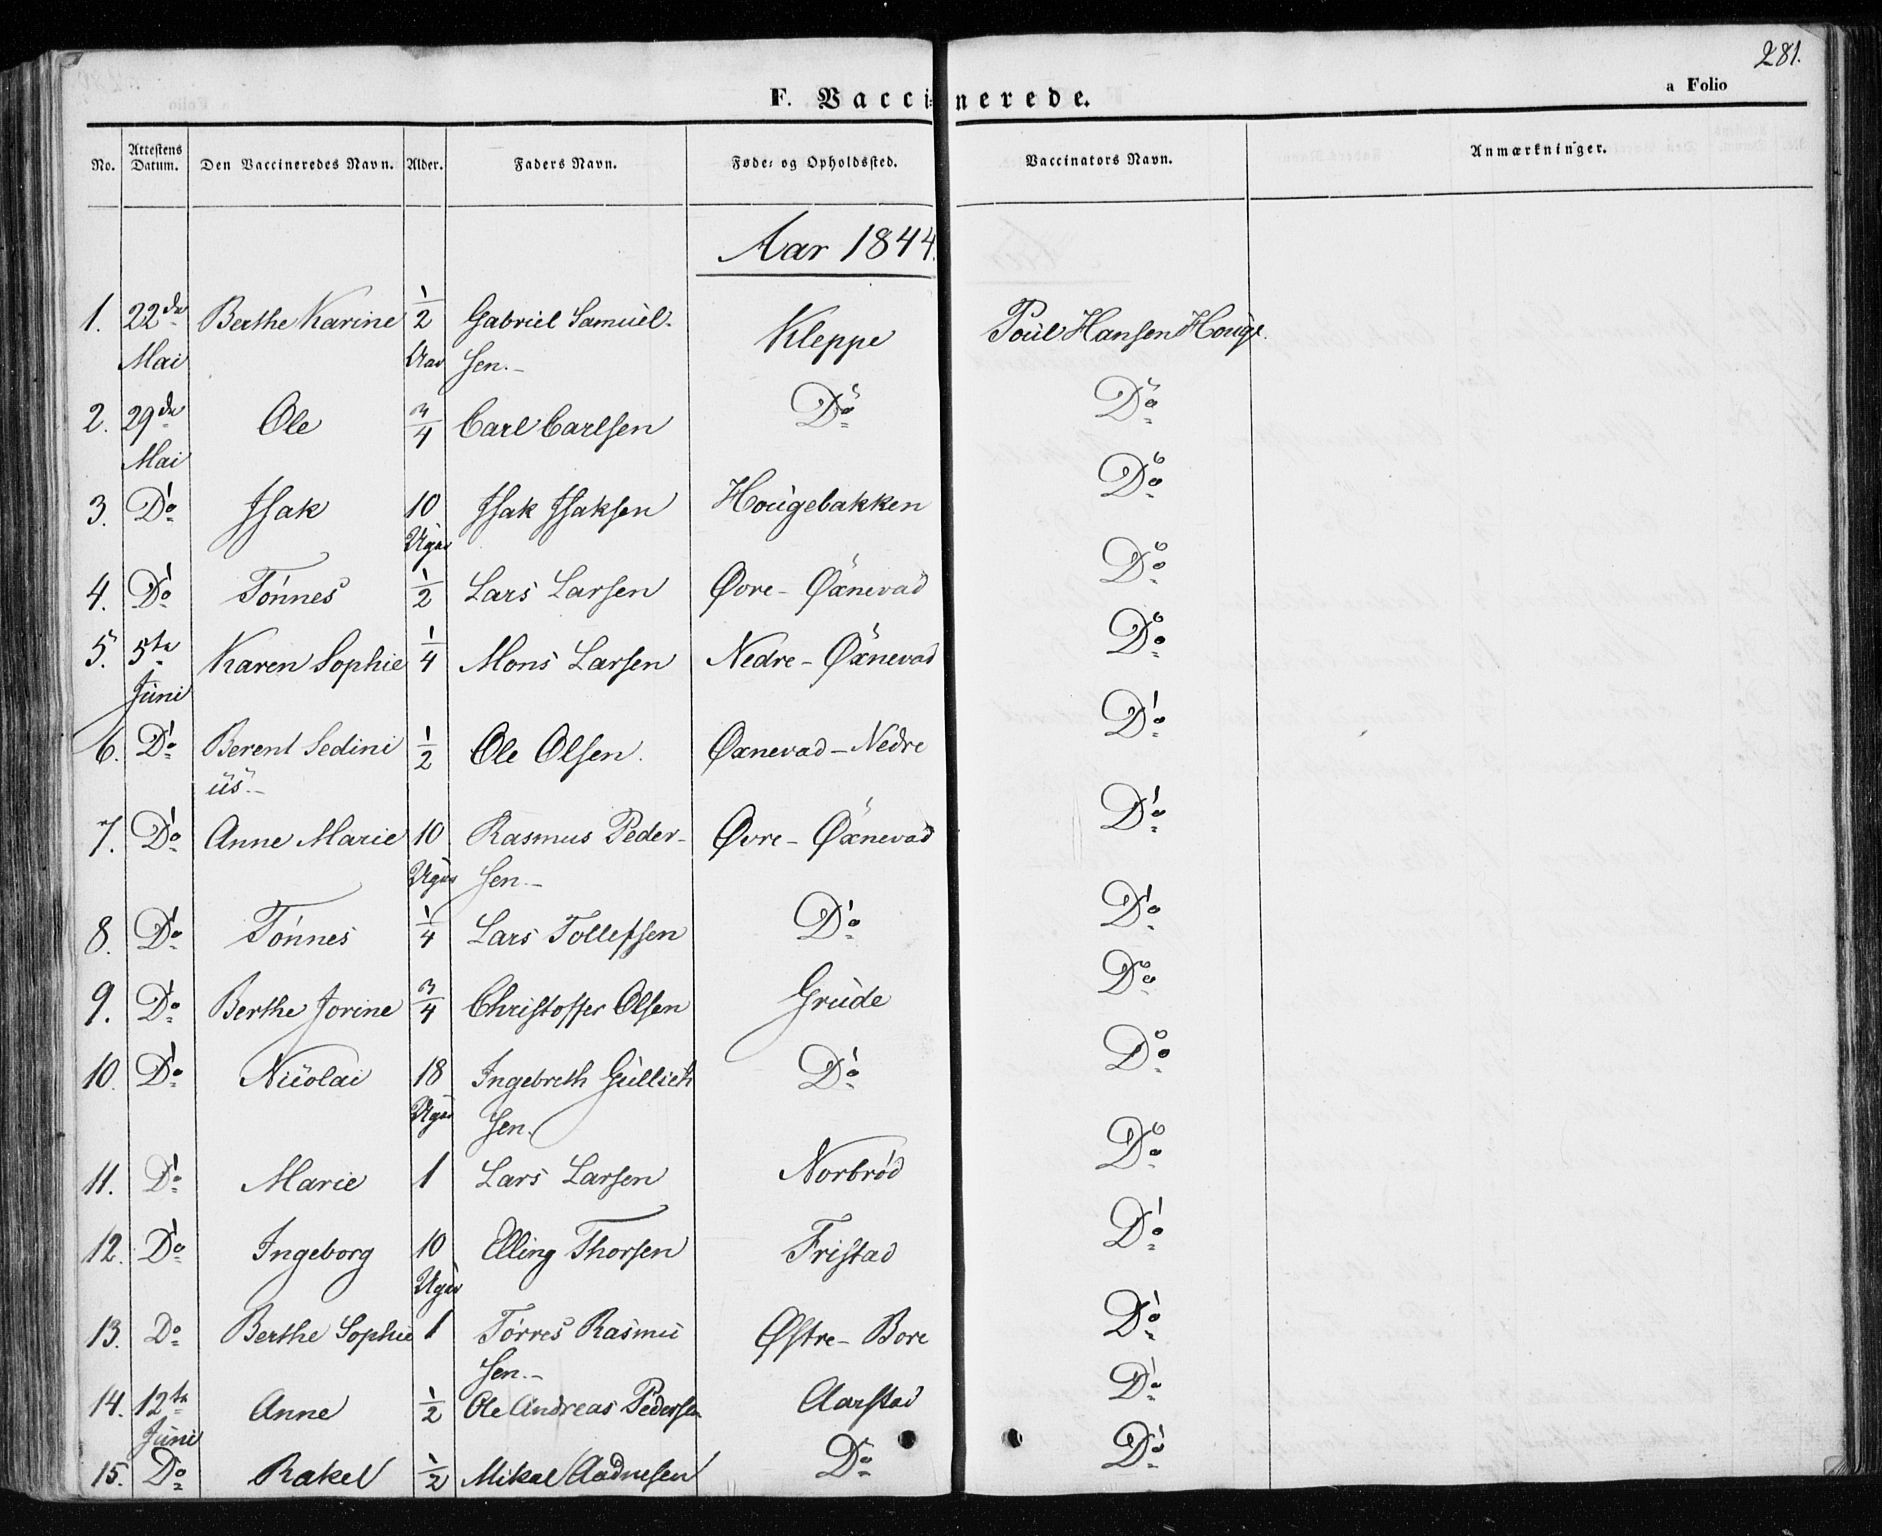 281.
F. Vaccinerede.
a Folio
No. Attestens Datum. Den Vaccineredes Navn. Alder. Faders Navn. Føde- og Opholdssted. Vaccinators Navn. Anmærkninger.
Aar 1844.
1. 22de Berthe Karine 1/2 Gabriel Samuel- Kleppe Poul Hansen Houge.
Mai Aar sen.-
2. 29de Ole 3/4 Carl Carlsen Do Do
Mai
3. Do Isak 10 Isak Isaksen Hougebakken Do
Uger
4. Do Tönnes 1/2 Lars Larsen Øvre- Øxnevad Do
5. 5te Karen Sophie 1/4 Mons Larsen Nedre- Øxnevad Do
Juni
6. Do Berent Sedini 1/2 Ole Olsen. Øxnevad- Nedre Do
us.-
7. Do Anne Marie 10 Rasmus Peder- Øvre- Øxnevad Do
Uger sen.-
8. Do Tönnes 1/4 Lars Tollefsen Do Do
9. Do Berthe Jorine 3/4 Christoffer Olsen Grude Do
10. Do Nicolai 18 Ingebreth Gullich Do Do
Uger sen.
11. Do Marie 1 Lars Larsen Norbrød Do
12. Do Ingeborg 10 Elling Thorsen Fristad Do
Uger
13. Do Berthe Sophie 1 Tørres Rasmu Østre- Bore Do
sen.-
14. 12te Anne 1/2 Ole Andreas Pedersen Aarstad Do
Juni
15. Do Rakel 1/2 Mikal Aadnesen Do Do